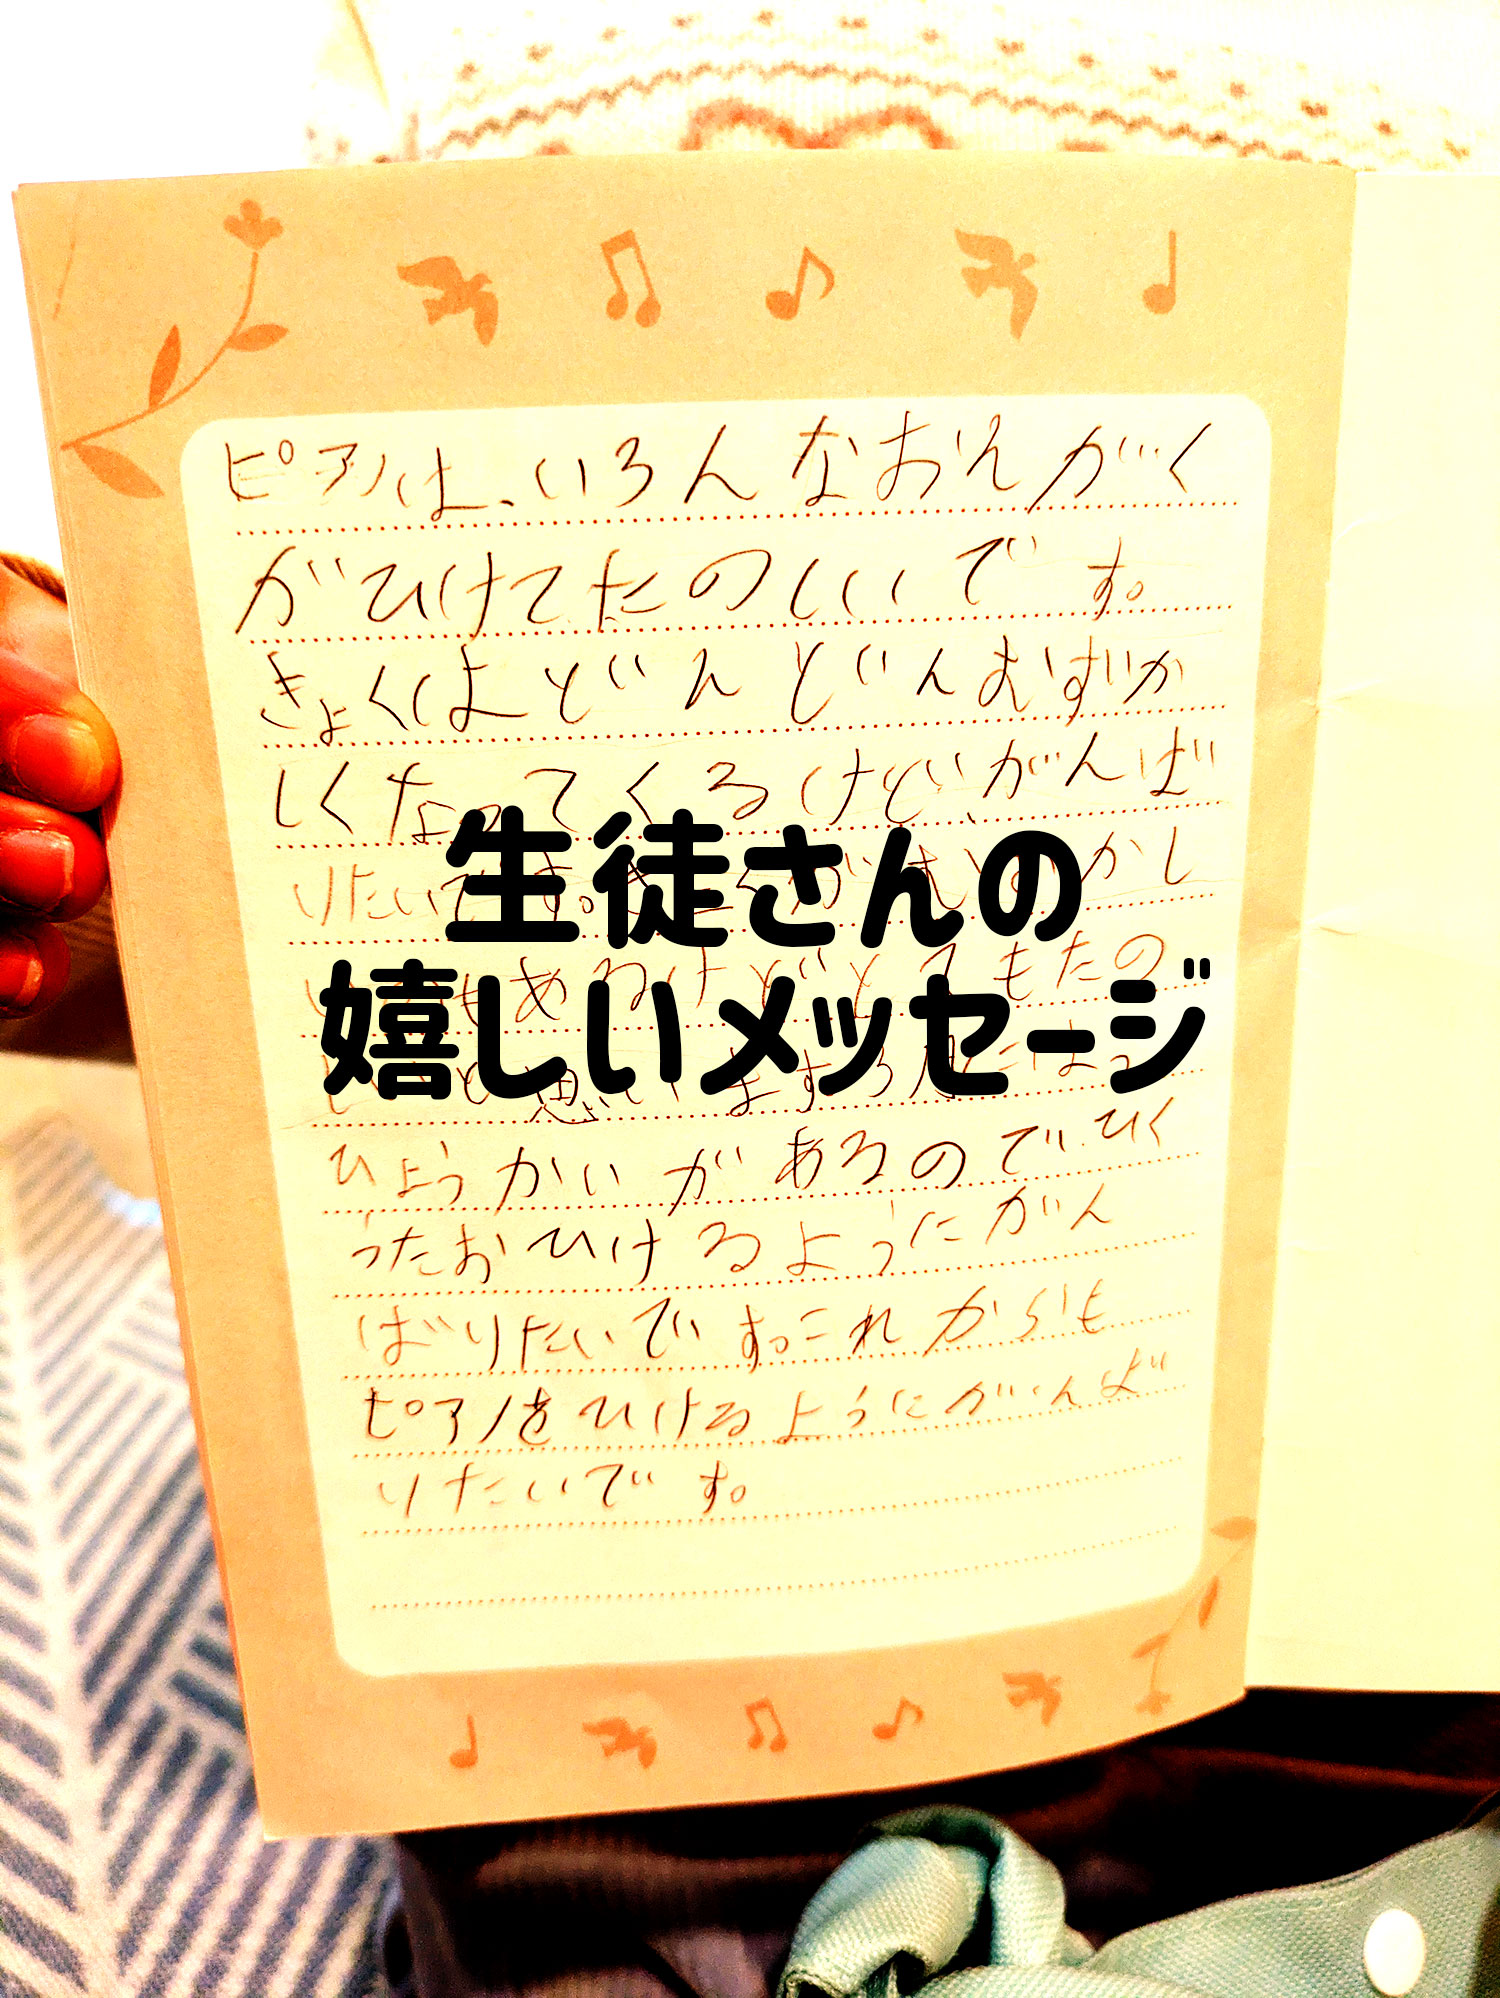 ピアノは、いろんなおんがく
がひけてたのしいです。
きょくはどんどんむずか
しくなってくるけど、がんば
りたいです。
かし
生徒さんの
あるけどとてもたの
嬉しいメッセージ
と思います
ひょうかいがあるので、ひく
うたおひけるようにがん
ばりたいです。これからも
ピアノをひけるようにがんば
りたいです。